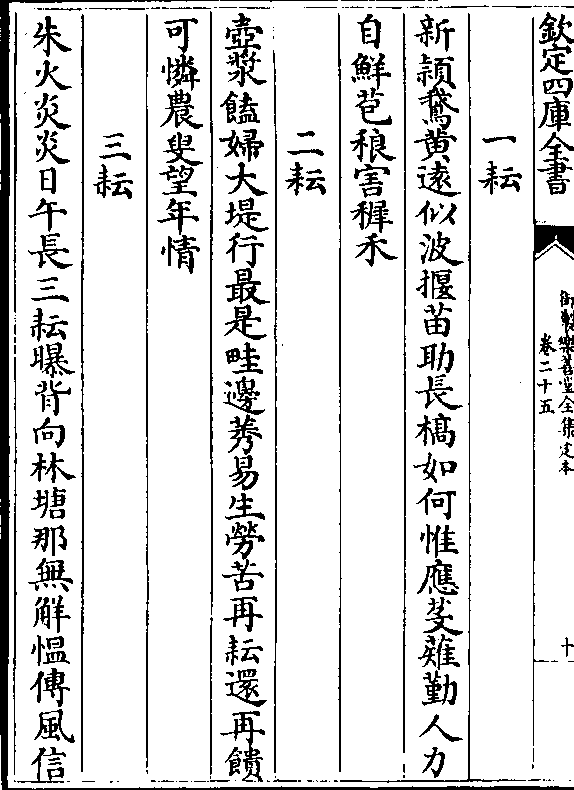 欽定四庫全書
御製樂善堂全集定本
卷二十五
十
一耘
新穎鵞黄遠似波揠苗助長槁如何惟應芟薙勤人力
自鮮苞稂害穉禾
二耘
壺漿饁婦大堤行最是畦邊莠易生勞苦再耘還再饋
可憐農叟望年情
三耘
朱火炎炎日午長三耘曝背向林塘那無觧愠傳風信